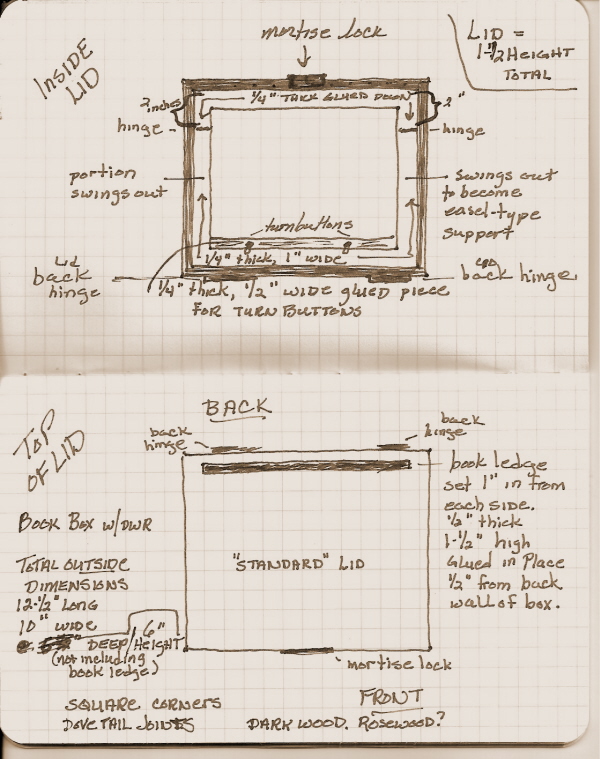 INSIDE
LID
mortise lock
LID =
1-1/2" HEIGHT
TOTAL
1/4" THICK GLUED DOWN
2 inches
2"
hinge
hinge
portion
swings out
swings out
to become
easel-type
support
turnbuttons
1/4" thick, 1" wide
Lid
back
hinge
back hinge
1/4" thick, 1/2" wide glued piece
FOR TURN BUTTONS
TOP
OF LID
BACK
back
hinge
back
hinge
book ledge
set 1" in from
each side.
1/2" thick
1-1/2" high
Glued in Place
1/2" from back
wall of box.
BOOK BOX W/DWR
"STANDARD" LID
TOTAL OUTSIDE
DIMENSIONS
12-1/2" LONG
10" WIDE
DEEP/HEIGHT
6"
(not including
book ledge)
mortise lock
FRONT
SQUARE CORNERS
DOVETAIL JOINTS
DARK WOOD. ROSEWOOD?